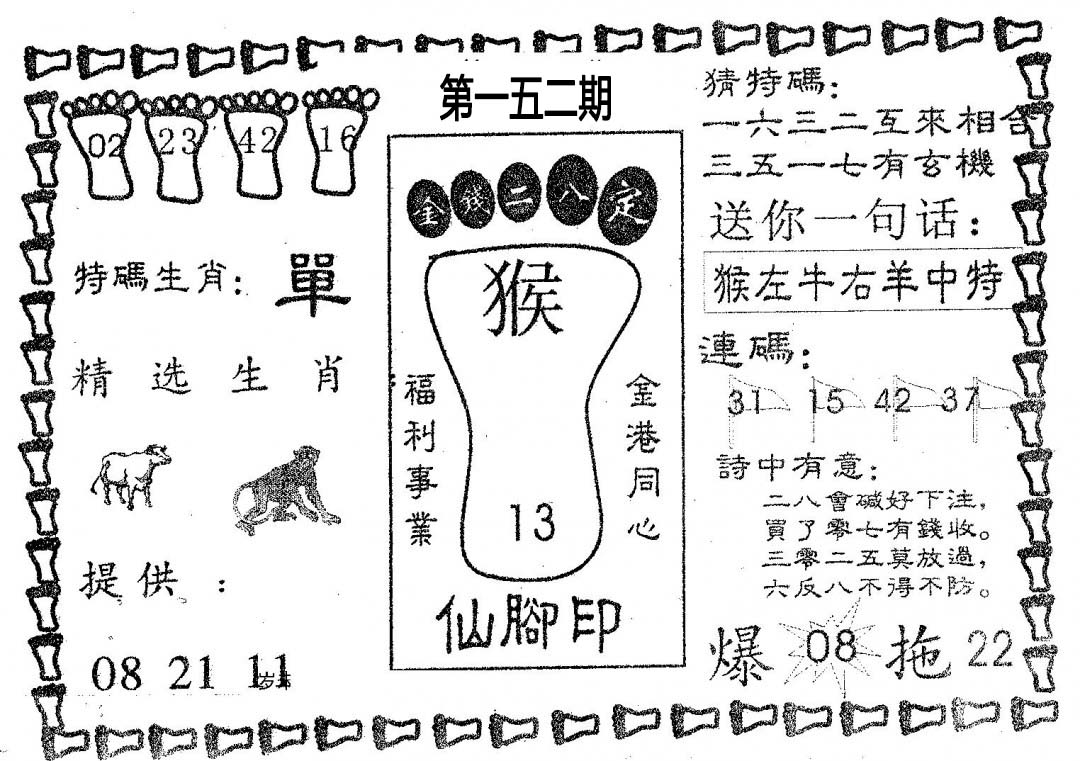 第一五二期
02 23 42 16
特碼生肖：單
精选生肖
提供：
08 21 11
金錢二八定
猴
福利事業
金港同心
13
仙腳印
猜特碼：
一六三二互來相合
三五一七有玄機
送你一句话：
猴左牛右羊中特
連碼：
31 15 42 37
詩中有意：
二八會碱好下注，
買了零七有錢收。
三零二五莫放過，
六反八不得不防。
爆 08 拖 22